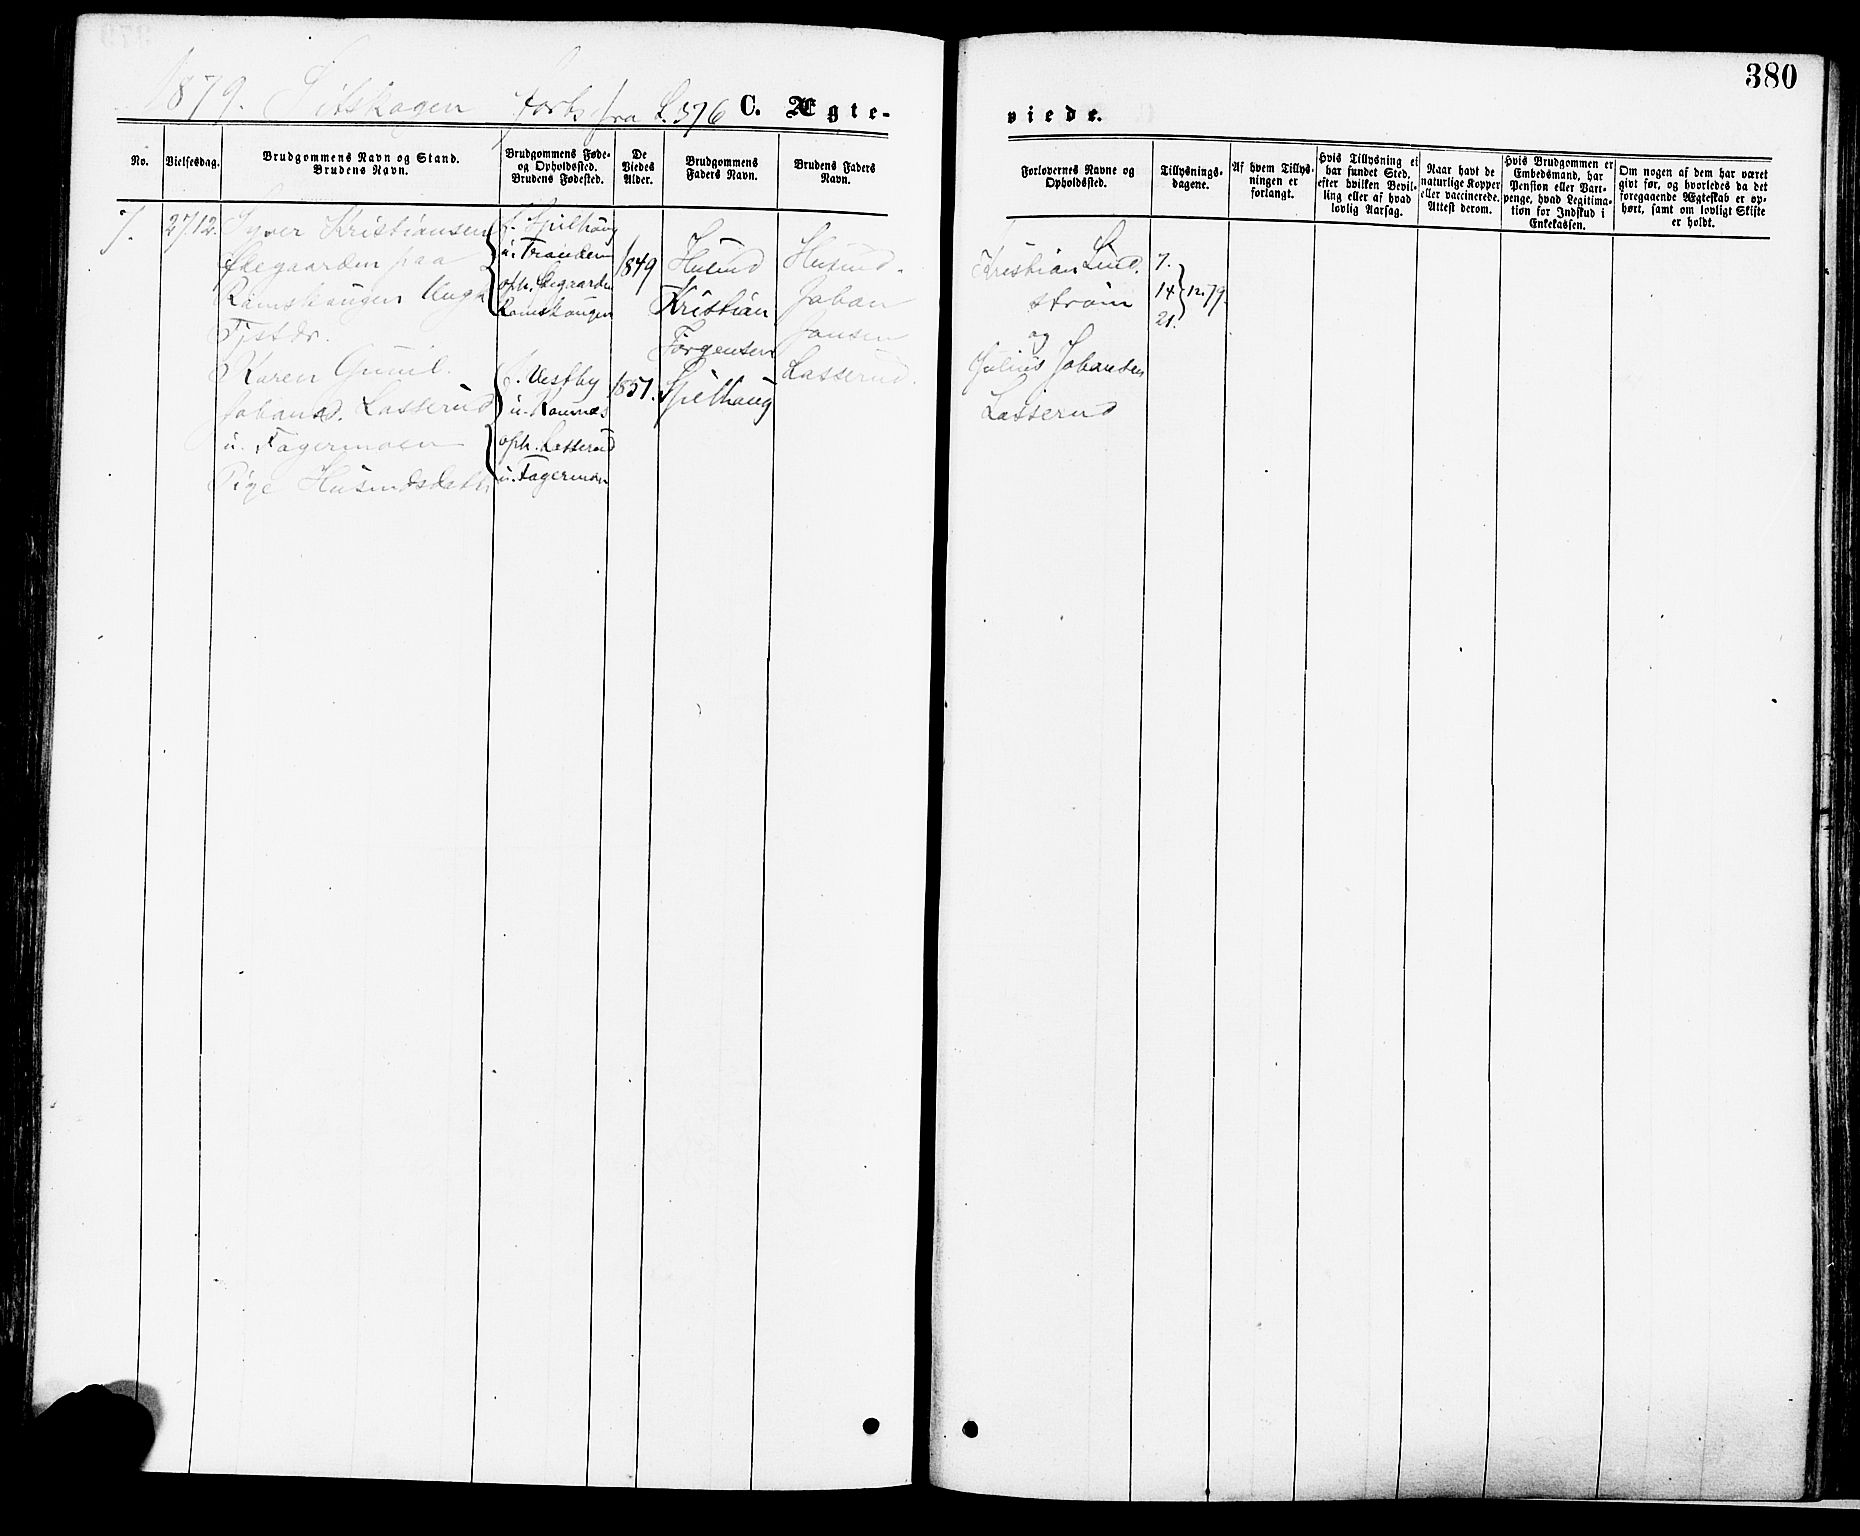 380
1879. Sitskogen forts fra S. 376 C. Ægte-
viede.
No.
Vielsesdag.
Brudgommens Navn og Stand.
Brudens Navn.
Brudgommens Føde-
og Opholdssted.
Brudens Fødested.
De
Viedes
Alder.
Brudgommens
Faders Navn.
Brudens Faders
Navn.
Forlovernes Navne og
Opholdssted.
Tillysnings-
dagene.
Af hvem Tillys-
ningen er
forlangt.
Hvis Tillysning ei
har fundet Sted,
efter hvilken Bevil-
ling eller af hvad
lovlig Aarsag.
Naar havt de
naturlige Kopper
eller vaccinerede.
Attest derom.
Hvis Brudgommen er
Embedsmand, har
Pension eller Vart-
penge, hvad Legitima-
tion for Indskud i
Enkekassen.
Om nogen af dem har været
givt før, og hvorledes da det
foregaaende Ægteskab er op-
hørt, samt om lovligt Skifte
er holdt.
7.
27/12.
Syver Kristiansen
Ødegaarden paa
Ramskaugen Ungk
Karen Gunil.
Johansd. Lasserud
u. Fagermoen
Pige Husmdsdatt.
f. Spilhaug
u. Tranden
oph. Ødegaarden
Ramskaugen
f. Vestby
u. Ramnæs
oph. Lasserud
u. Fagermoen
1849
1857.
Husmd
Kristian
Jørgensen
Spilhaug
Husmd.
Johan
Jansen
Lasserud.
Kristian Lind.
strøm
og
Julius Johansen
Lasserud
7.
14 12.79
21.